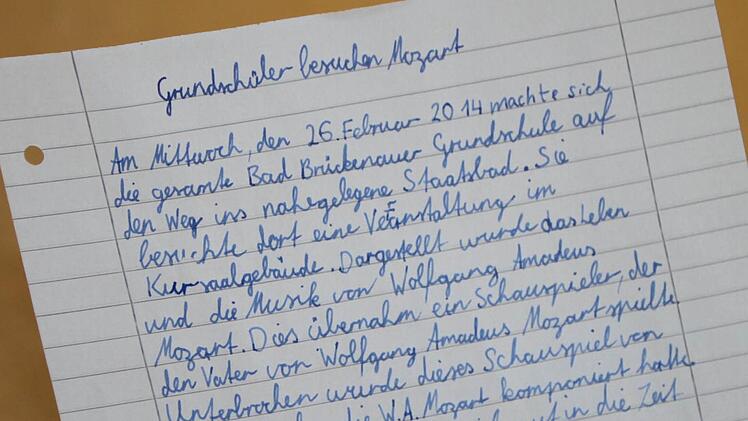 Grundschüler besuchen Mozart
Am Mittwoch, den 26. Februar 2014 machte sich
die gesamte Bad Brückenauer Grundschule auf
den Weg ins nahegelegene Staatsbad. Sie
besuchte dort eine Veranstaltung im
Kursaalgebäude. Dargestellt wurde das Leben
und die Musik von Wolfgang Amadeus
Mozart. Dies übernahm ein Schauspieler, der
den Vater von Wolfgang Amadeus Mozart spielte.
Unterbrochen wurde dieses Schauspiel von
die W.A. Mozart komponiert hatte.
in die Zeit